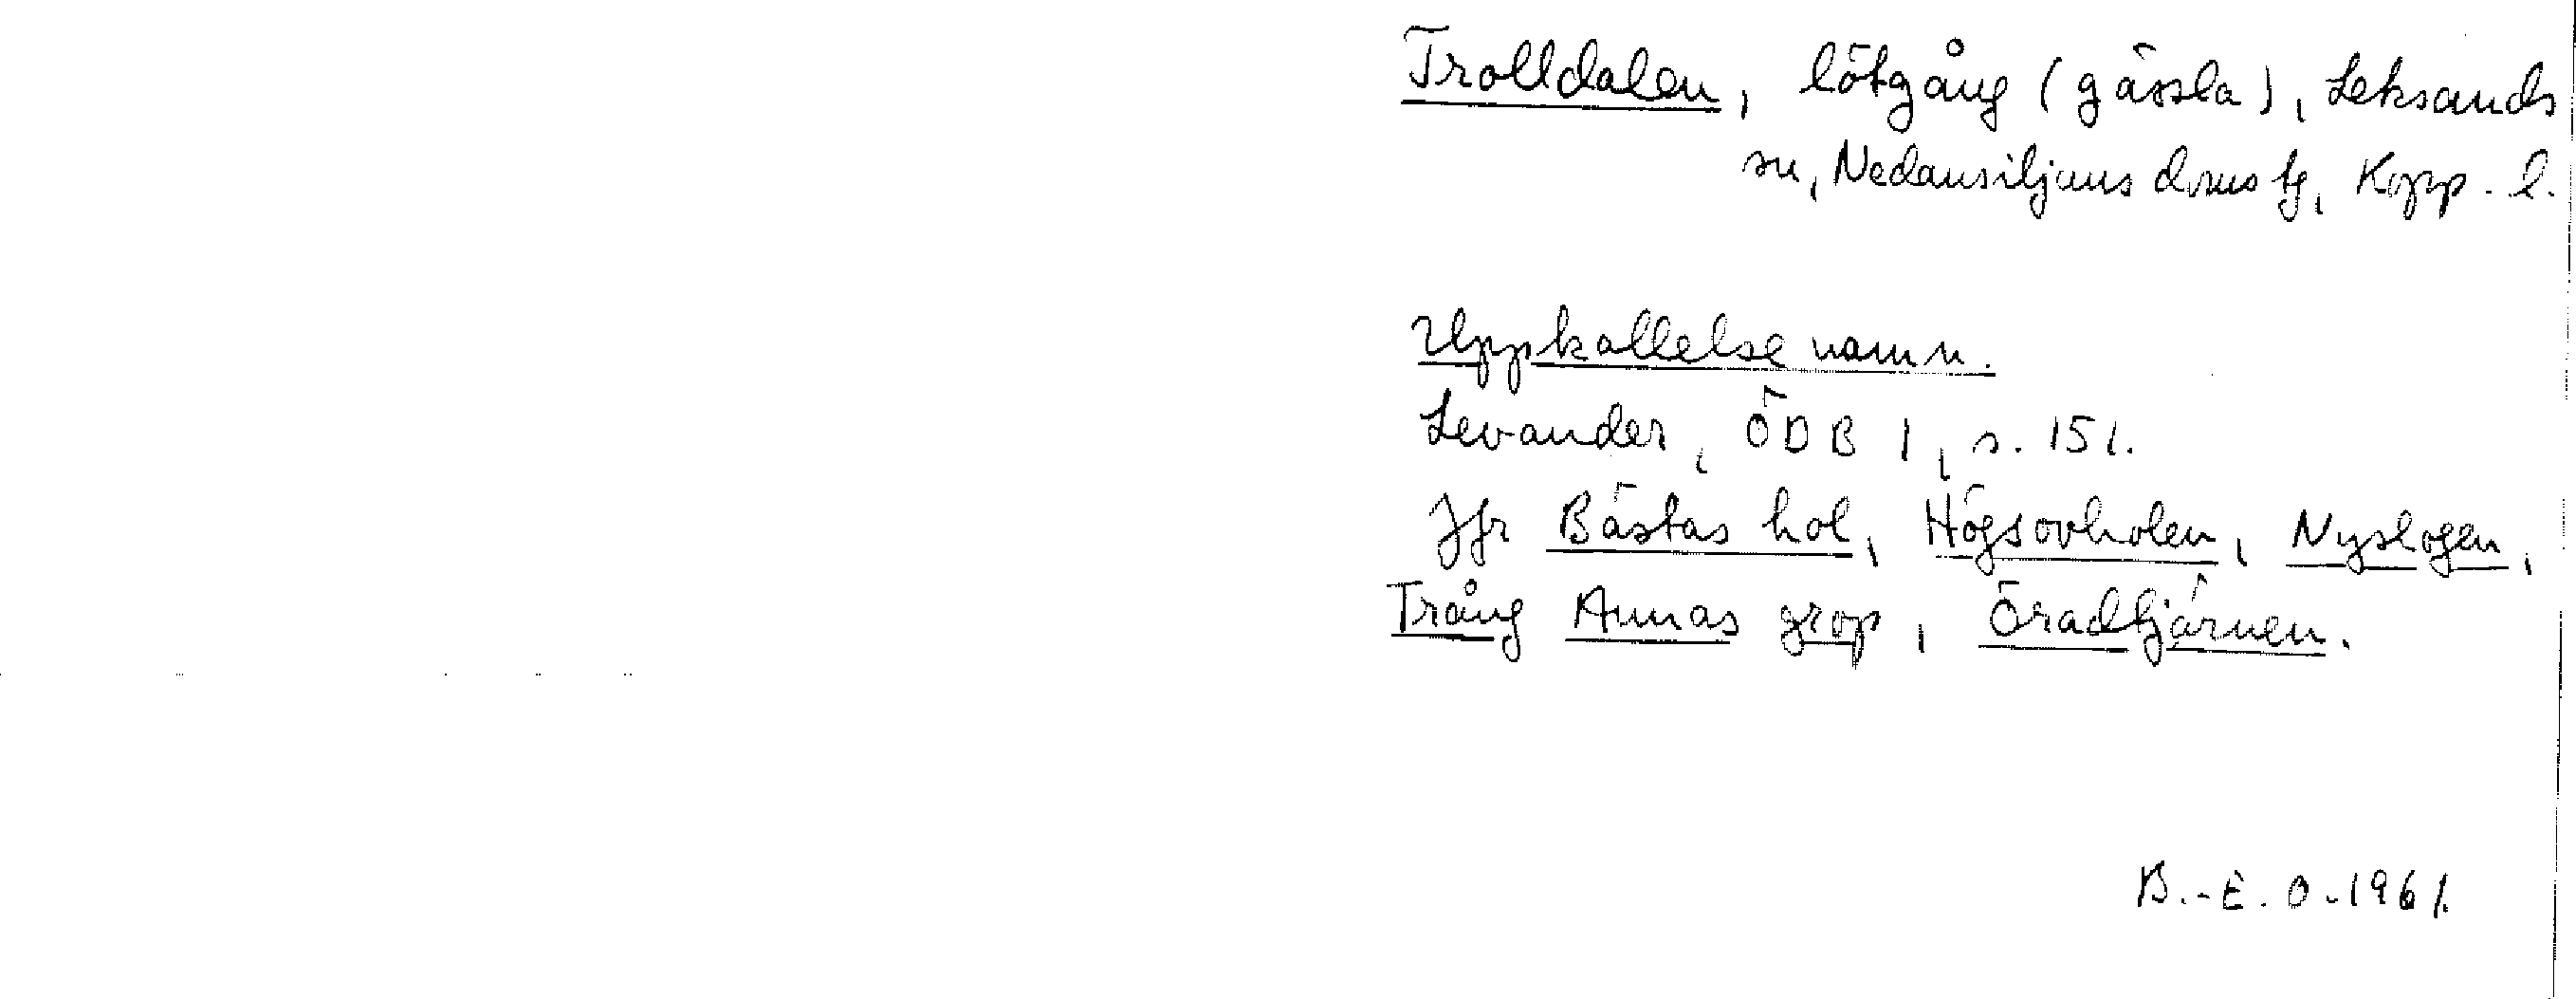 Trolldalen, lötgång (gässla), Leksands
sn, Nedansiljans domstg, Kopp. l.
Uppkallelsenamn.
Levander, ÖDB 1, s. 151.
Jfr Bästas hol, Högsovholen, Nyslogen,
Trång Annas grop, Öradtjärnen.
B.-E. O. 1961.